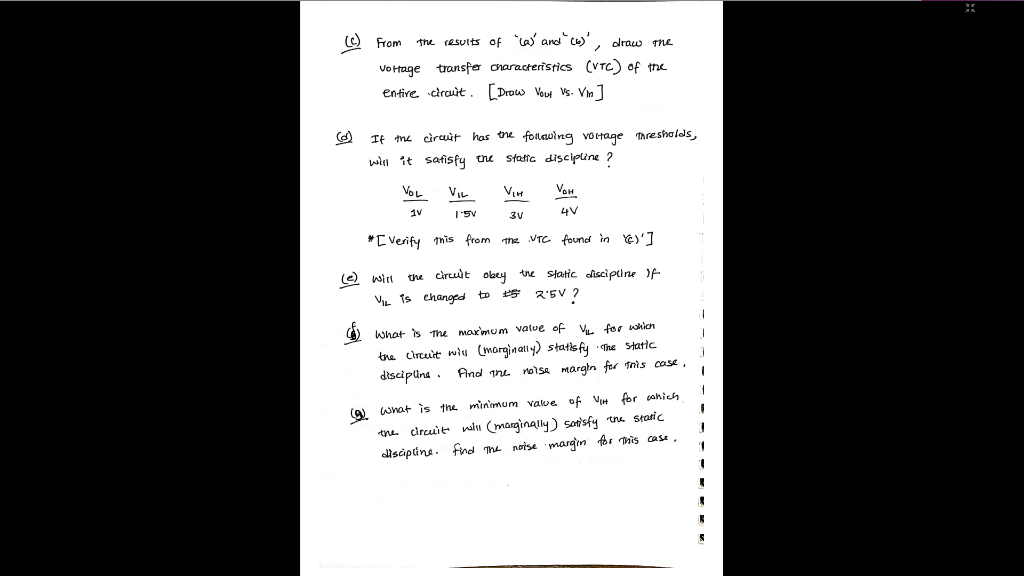 (c) From the results of '(a)' and '(b)', draw the
voltage transfer characteristics (VTC) of the
entire circuit. [Draw Vout vs. Vin]
(d) If the circuit has the following voltage thresholds,
will it satisfy the static discipline?
VOL VIL VIH VOH
1V 1.5V 3V 4V
*[Verify this from the VTC found in '(c)']
(e) Will the circuit obey the static discipline if
VIL is changed to 2.5V?
(f) What is the maximum value of VIL for which
the circuit will (marginally) statisfy the static
discipline. Find the noise margin for this case.
(g) What is the minimum value of VIH for which
the circuit will (marginally) satisfy the static
discipline. find the noise margin for this case.